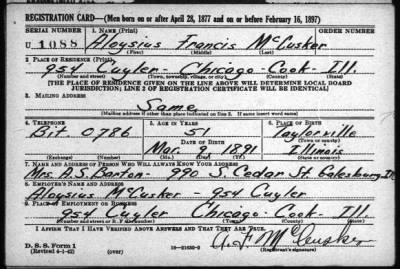 REGISTRATION CARD—(Men born on or after April 28, 1877 and on or before February 16, 1897)
SERIAL NUMBER 1. NAME (Print) ORDER NUMBER
U 1088 Aloysius Francis McCusker
(First) (Middle) (Last)
2. PLACE OF RESIDENCE (Print)
954 Cuyler - Chicago - Cook - Ill.
(Number and street) (Town, township, village, or city) (County) (State)
[THE PLACE OF RESIDENCE GIVEN ON THE LINE ABOVE WILL DETERMINE LOCAL BOARD
JURISDICTION; LINE 2 OF REGISTRATION CERTIFICATE WILL BE IDENTICAL]
3. MAILING ADDRESS
Same
[Mailing address if other than place indicated on line 2. If same insert word same]
4. TELEPHONE 5. AGE IN YEARS 6. PLACE OF BIRTH
Bit. 0786 51 Taylorville
DATE OF BIRTH (Town or county)
Mar. 9 1891 Illinois
(Exchange) (Number) (Mo.) (Day) (Yr.) (State or country)
7. NAME AND ADDRESS OF PERSON WHO WILL ALWAYS KNOW YOUR ADDRESS
Mrs. A.S. Barton - 990 S. Cedar St. Galesburg Ill
8. EMPLOYER'S NAME AND ADDRESS
Aloysius McCusker - 954 Cuyler
9. PLACE OF EMPLOYMENT OR BUSINESS
954 Cuyler Chicago. Cook - Ill.
(Number and street or R. F. D. number) (Town) (County) (State)
I AFFIRM THAT I HAVE VERIFIED ABOVE ANSWERS AND THAT THEY ARE TRUE.
D. S. S. Form 1
(Revised 4-1-42) (over) 16—21630-2 A. F. McCusker
(Registrant's signature)